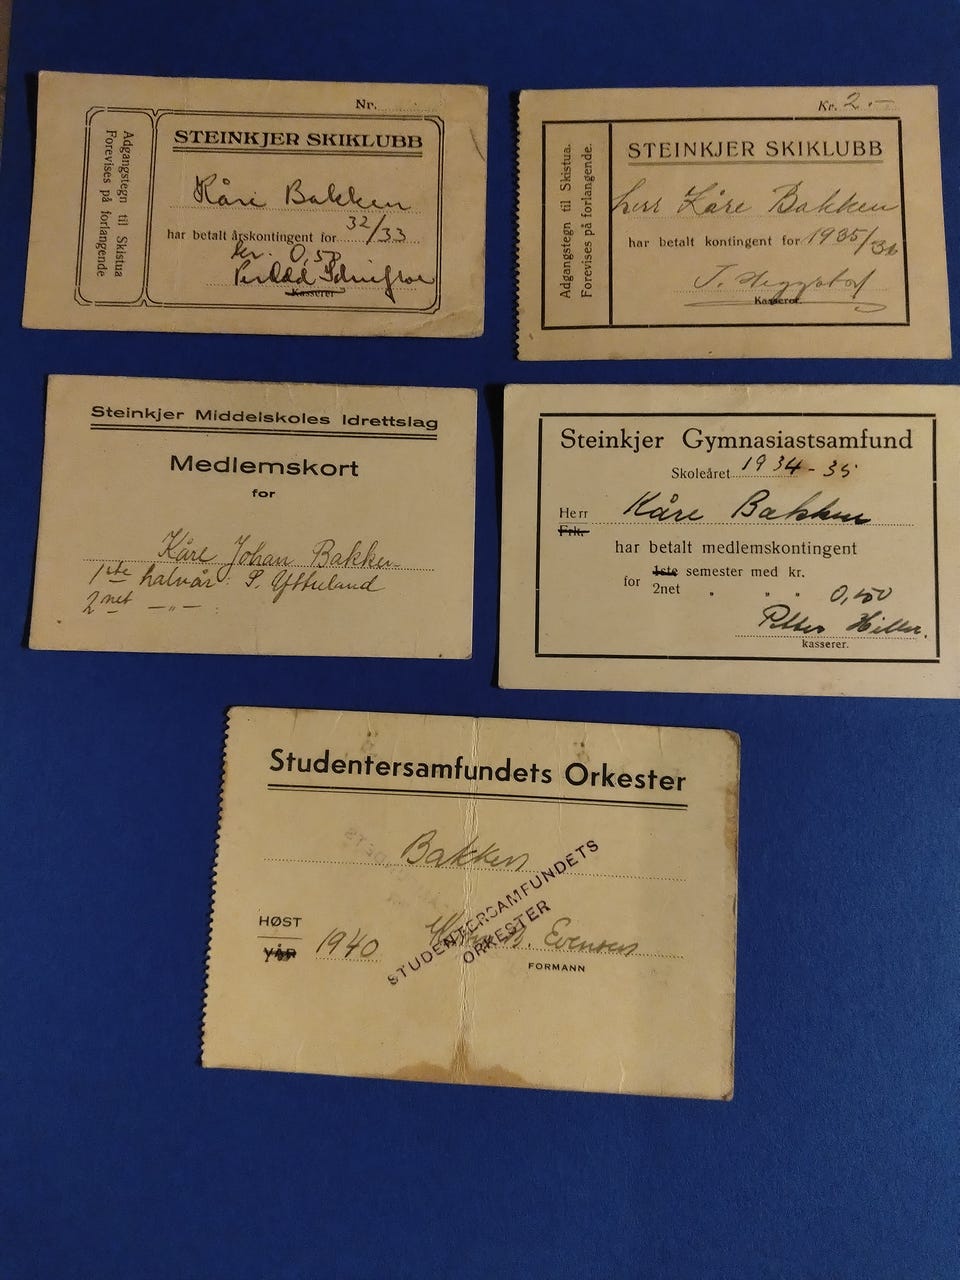 Nr.
STEINKJER SKIKLUBB
Adgangstegn til Skistua
Forevises på forlangende
Kåre Bakken
har betalt årskontingent for 32/33
kr. 0,50
Kasserer
Kr. 2.-
STEINKJER SKIKLUBB
Adgangstegn til Skistua.
Forevises på forlangende.
herr Kåre Bakken
har betalt kontingent for 1935/36
Kasserer.
Steinkjer Middelskoles Idrettslag
Medlemskort
for
Kåre Johan Bakken
1ste halvår: S.
2net -"- :
Steinkjer Gymnasiastsamfund
Skoleåret 1934-35
Herr Kåre Bakken
Frk.
har betalt medlemskontingent
for 1ste semester med kr.
2net " " " 0,50
Petter Hiller.
kasserer.
Studentersamfundets Orkester
Bakken
HØST
VÅR 1940
Evensen
FORMANN
STUDENTERSAMFUNDETS
ORKESTER